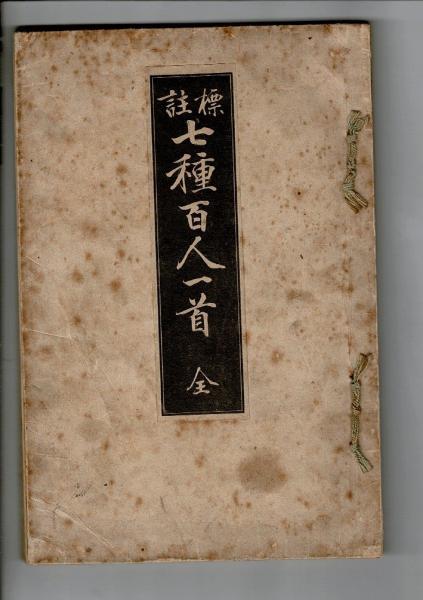 標註
七種百人一首
全